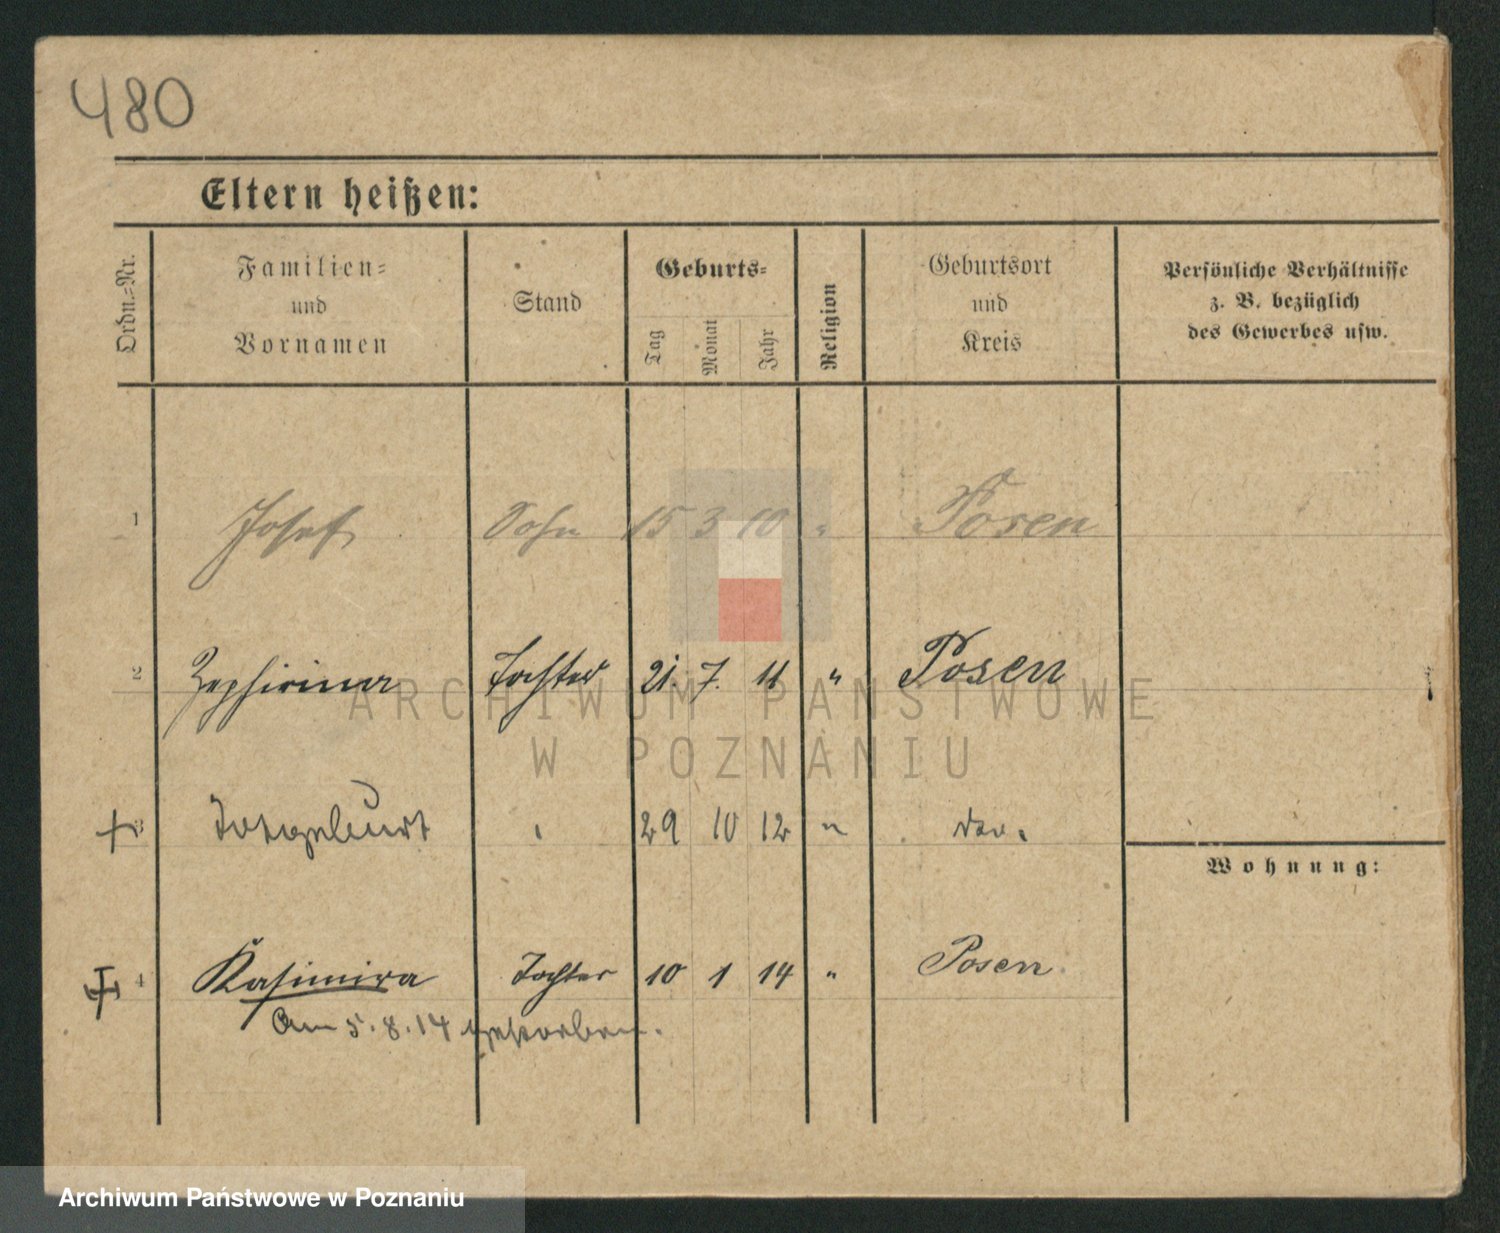 480
Eltern heißen:
Ordn.=Nr.
Familien=
und
Vornamen
Stand
Geburts=
Tag
Monat
Jahr
Religion
Geburtsort
und
Kreis
Persönliche Verhältnisse
z. B. bezüglich
des Gewerbes usw.
1 Josef Sohn 15 3 10 " Posen
2 Zephirina Tochter 21. 7. 11 " Posen
ARCHIWUM PAŃSTWOWE
W POZNANIU
3 Totgeburt " 29 10 12 "
Wohnung:
4 Kasimira Tochter 10 1 14 " Posen
Am 5.8.14 gestorben.
Archiwum Państwowe w Poznaniu